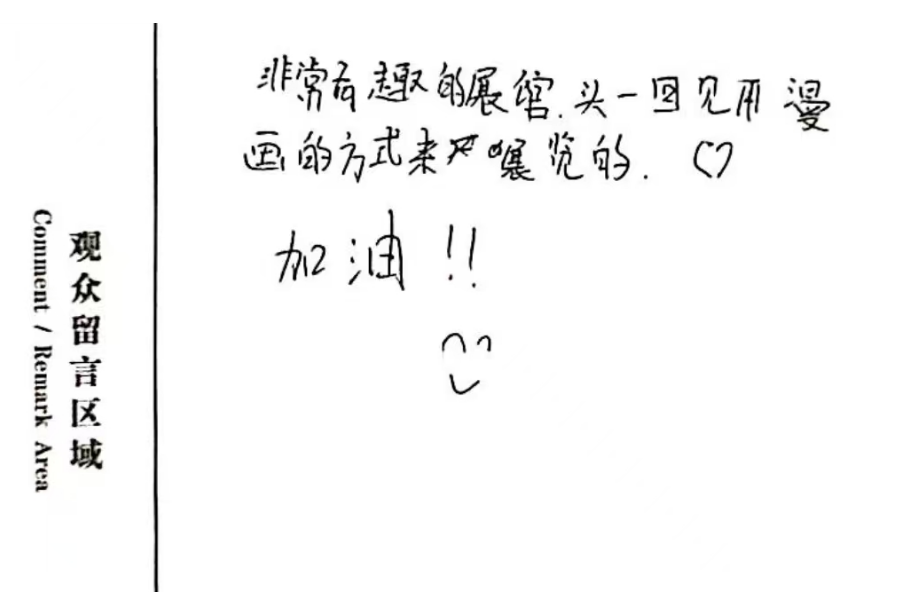 非常有趣的展馆.头一回见用漫
画的方式来展览的. ♡
加油!!
观众留言区域
Comment / Remark Area